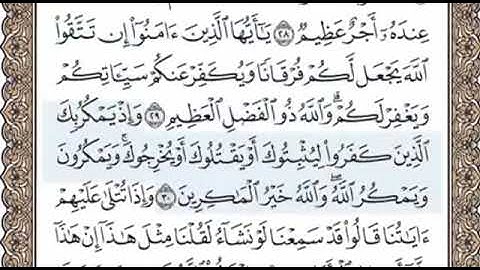 عِندَهُۥٓ أَجْرٌ عَظِيمٌ ٢٨ يَٰٓأَيُّهَا ٱلَّذِينَ ءَامَنُوٓا۟ إِن تَتَّقُوا۟
ٱللَّهَ يَجْعَل لَّكُمْ فُرْقَانًا وَيُكَفِّرْ عَنكُمْ سَيِّـَٔاتِكُمْ
وَيَغْفِرْ لَكُمْ ۗ وَٱللَّهُ ذُو ٱلْفَضْلِ ٱلْعَظِيمِ ٢٩ وَإِذْ يَمْكُرُ بِكَ
ٱلَّذِينَ كَفَرُوا۟ لِيُثْبِتُوكَ أَوْ يَقْتُلُوكَ أَوْ يُخْرِجُوكَ ۚ وَيَمْكُرُونَ
وَيَمْكُرُ ٱللَّهُ ۖ وَٱللَّهُ خَيْرُ ٱلْمَٰكِرِينَ ٣٠ وَإِذَا تُتْلَىٰ عَلَيْهِمْ
ءَايَٰتُنَا قَالُوا۟ قَدْ سَمِعْنَا لَوْ نَشَآءُ لَقُلْنَا مِثْلَ هَٰذَآ ۙ إِنْ هَٰذَآ